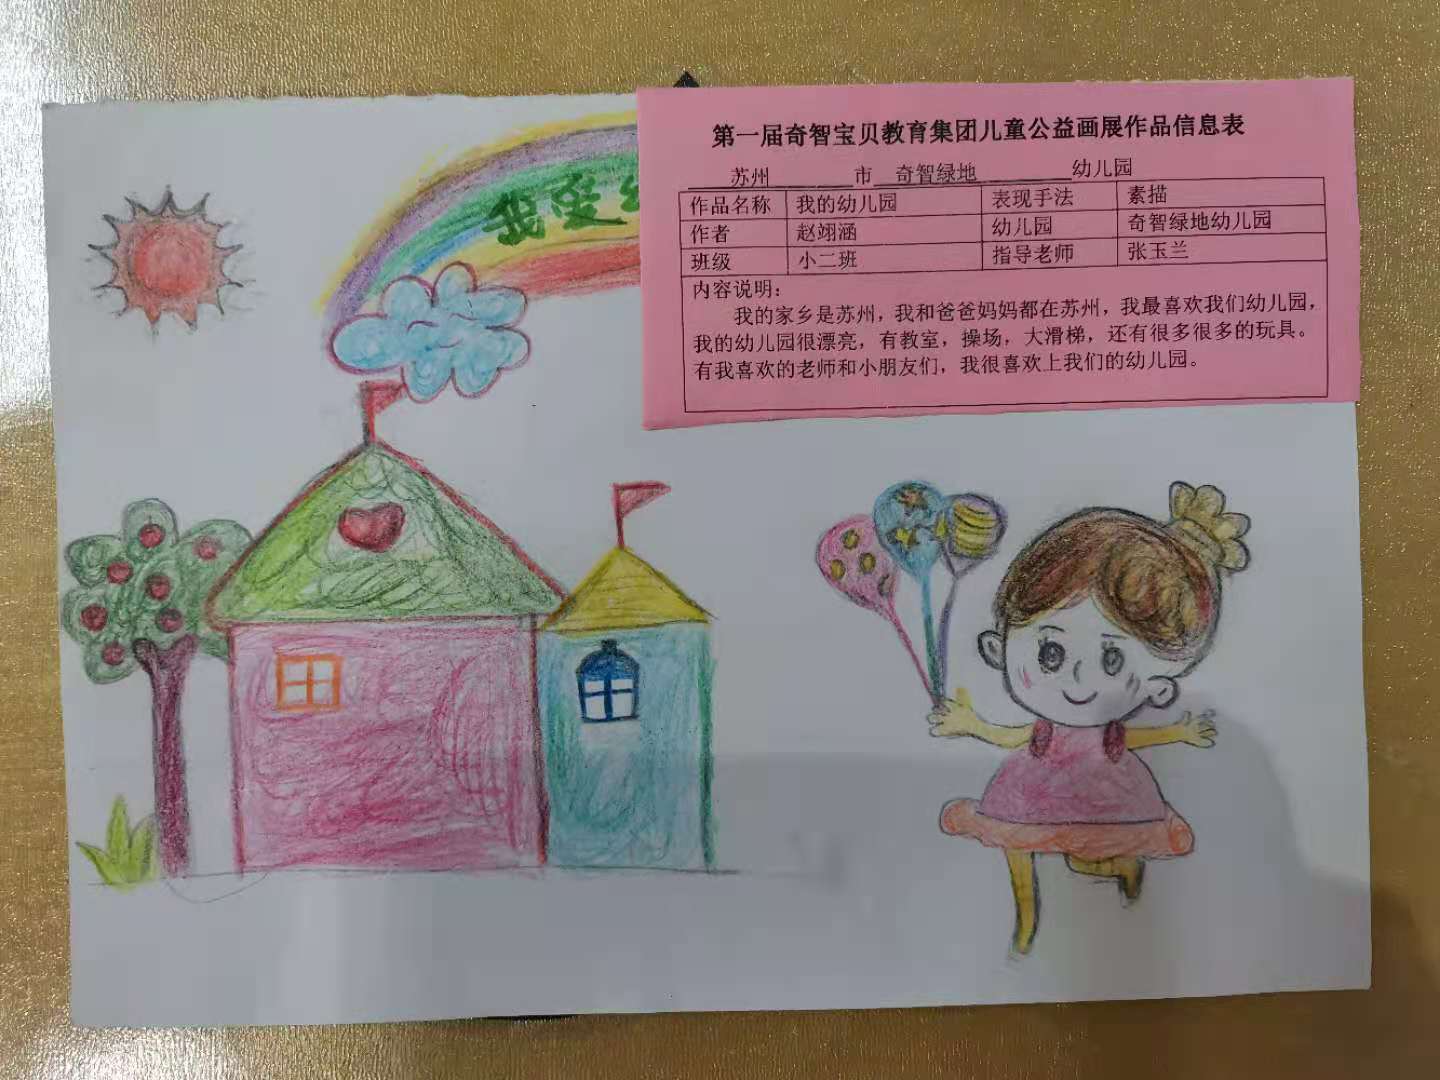 第一届奇智宝贝教育集团儿童公益画展作品信息表
苏州 市 奇智绿地 幼儿园
作品名称 我的幼儿园 表现手法 素描
作者 赵翊涵 幼儿园 奇智绿地幼儿园
班级 小二班 指导老师 张玉兰
内容说明：
我的家乡是苏州，我和爸爸妈妈都在苏州，我最喜欢我们幼儿园，
我的幼儿园很漂亮，有教室，操场，大滑梯，还有很多很多的玩具。
有我喜欢的老师和小朋友们，我很喜欢上我们的幼儿园。
我爱